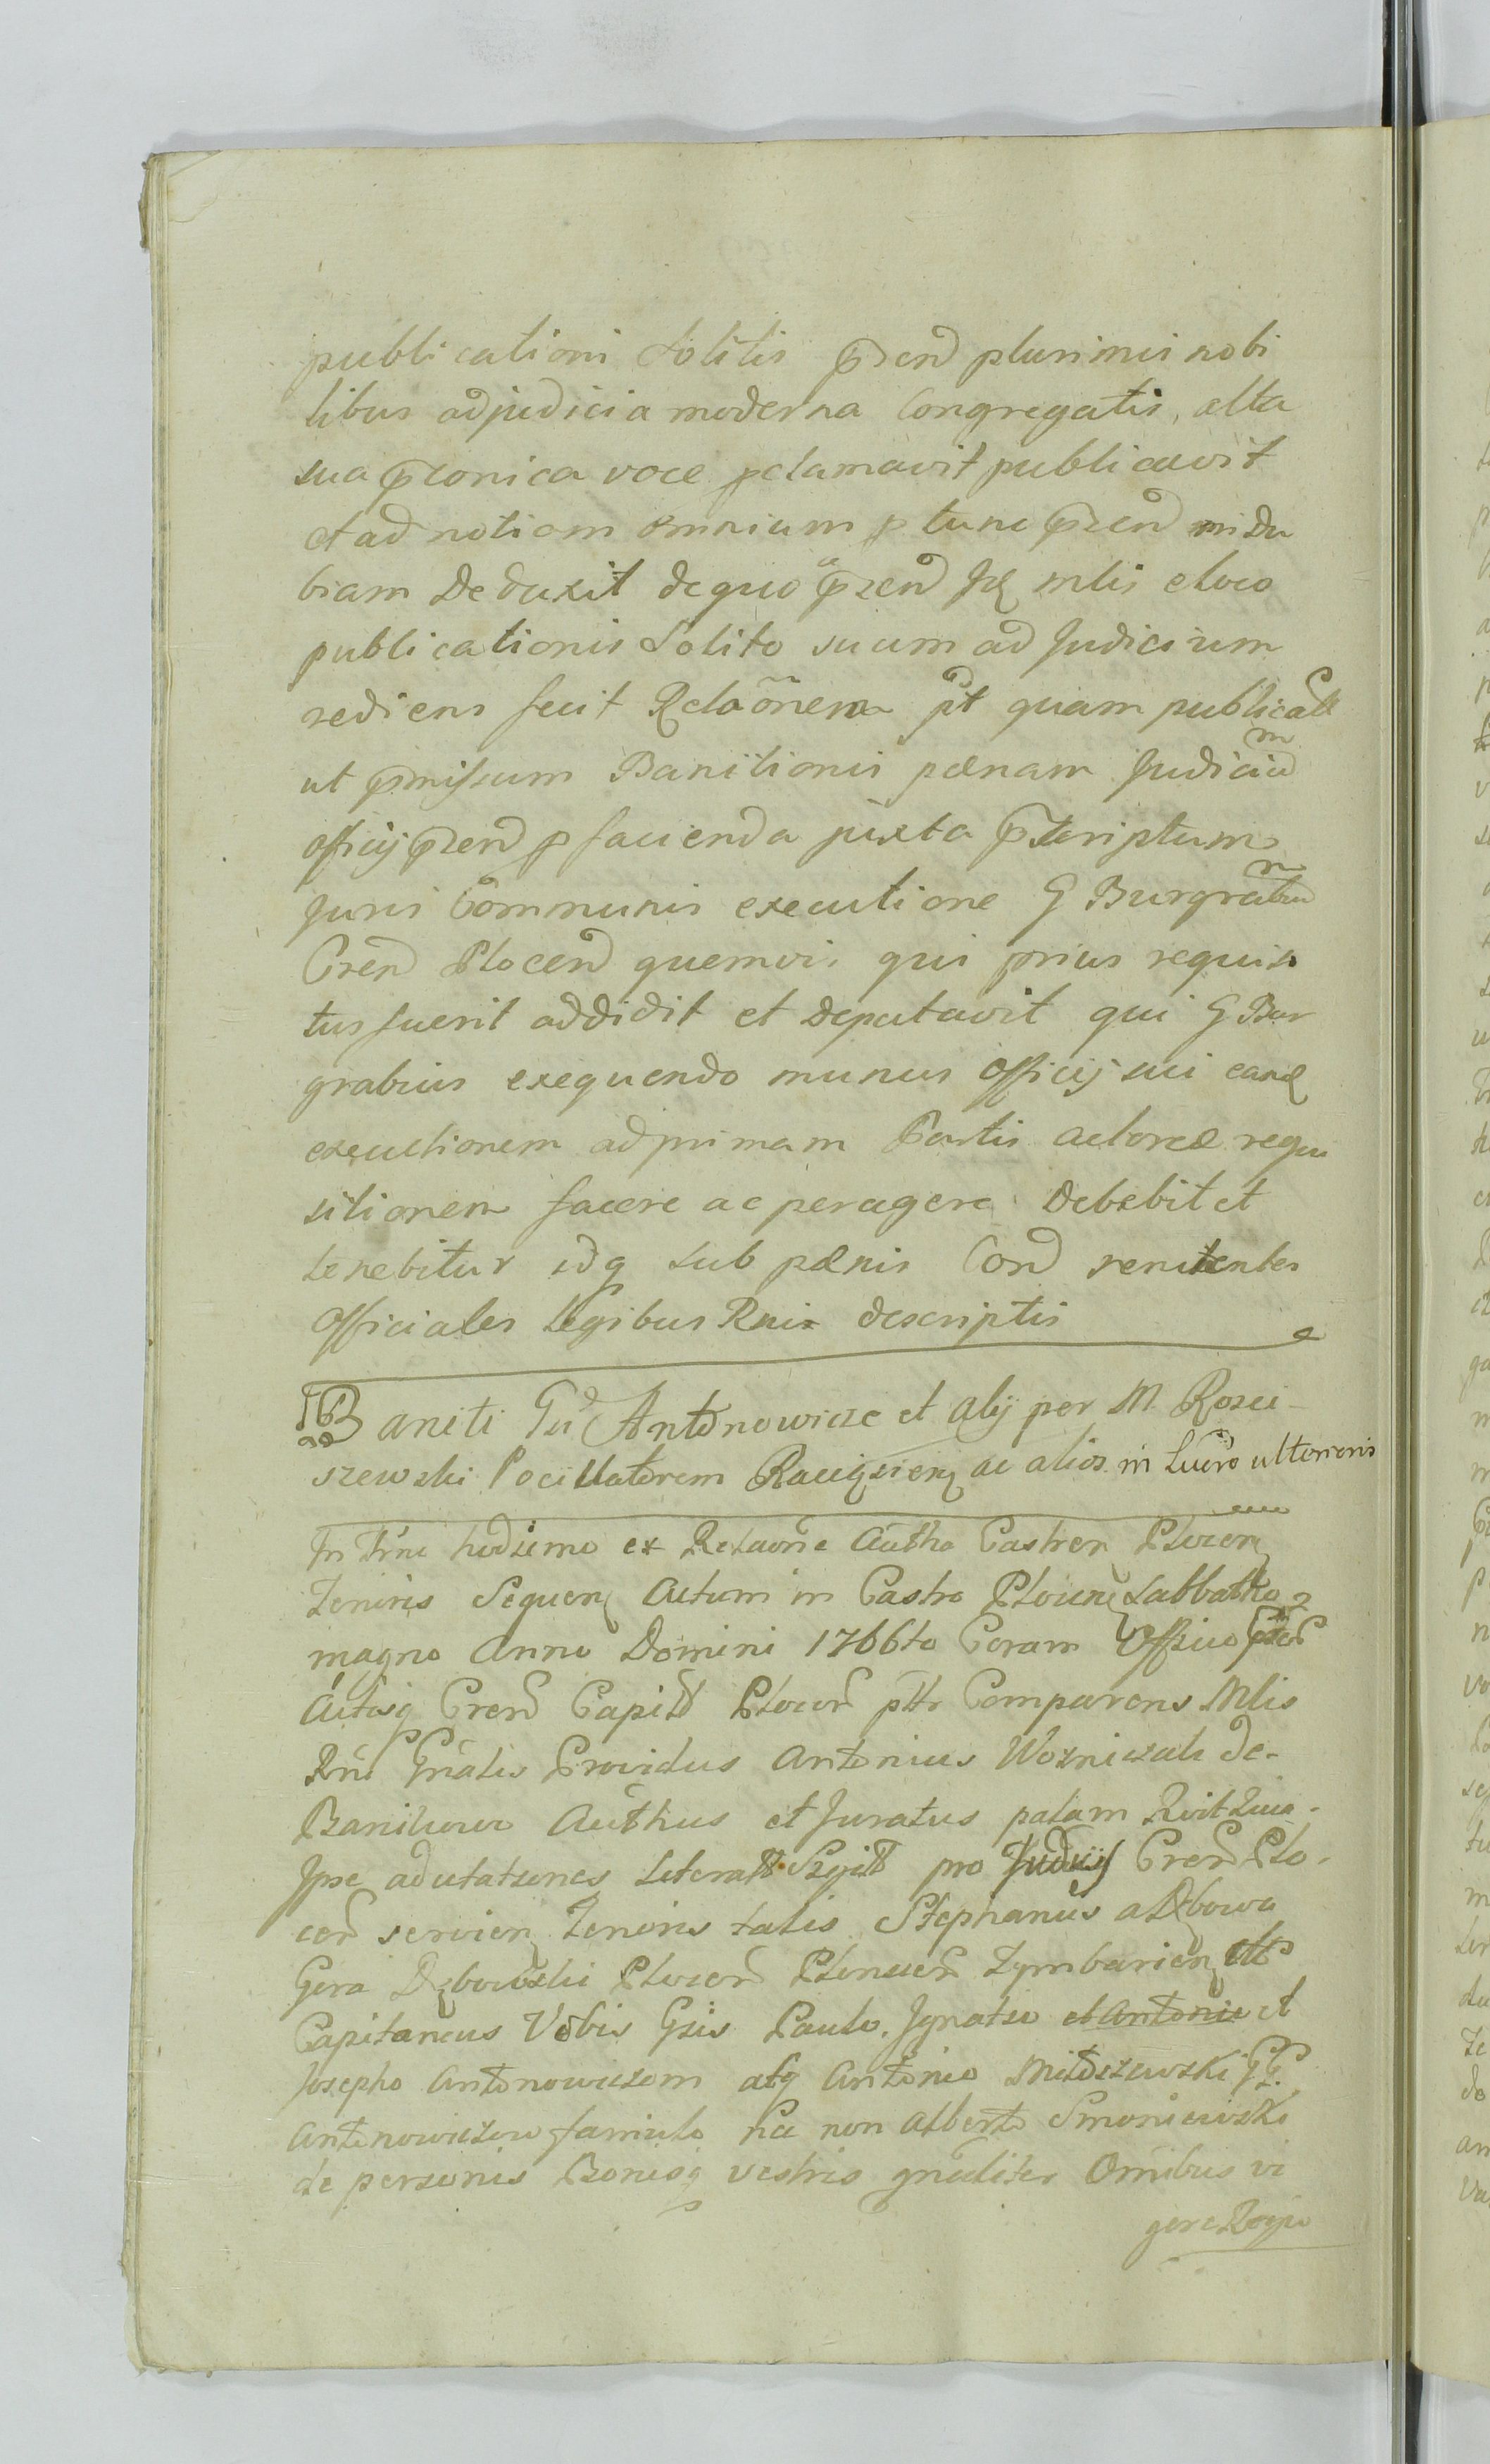 publicationi Solitis pñsen plurimis nobi
libus ad judicia moderna Congregatis, alta
sua pñconica voce pclamavit publicavit
et ad notiam omnium p tunc pñsen indu
biam Deduxit de quo pñsen Jd mlis e loco
publicationis Solito suum ad Judicium
rediens fecit Relaõnem pt quam publicatt
ut pñmissum Banitionis pœnam Judicium
Officij pñsen p facienda juxta pñscriptum
Juris Communis executione G Burgrabium
Cren Plocen quemvis qui prius requisi
tus fuerit addidit et Deputavit qui G Bur
grabius exequendo munus Officij sui eand
executionem ad primam Partis actoreæ requi
sitionem facere ac peragere Debebit et
tenebitur idq sub pœnis Con renitentes
Officiales legibus Rni descriptis
Baniti Gd Antonowicze et alij per M Rosci-
szewski Pocillatorem Raciązien ac alios in Lucro ulterioris
In Trno hodierno ex Relaone Autha Castren Plocen
Tenoris Sequen Actum in Castro Plocen Sabbatho
magno Anno Domini 1766to Coram Officio pñsen
Actisq Cren Capitl Plocen ptr Comparens Mlis
Rni Gnalis Providus Antonius Wozniczak de
Banikowo Authus et Juratus palam Rcit Quia
Ipse adcitationes Literatt Sigitt pro Judicijs Cren Plo-
cen servien Tenoris talis Stephanus a Dębowa
Gora Dębowski Plocen Plonscen Zymbarien ett
Capitaneus Vobis Gsis Paulo, Ignatio et Antonio et
Josepho Antonowiczom atq Antonio Miłoszewski GG.
Antonowiczow famulo nec non Alberto Smoniewski
de personis Bonisq vestris gnaliter Omnibus vi
gore Regio